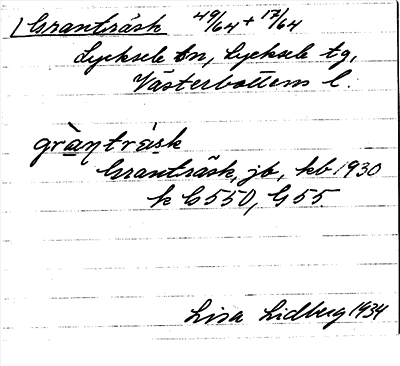 Granträsk 49/64 + 17/64
Lycksele sn, Lycksele tg,
Västerbottens l.
grànträ́sk
Granträsk, jb, kb 1930
k G550, G55
Lisa Lidberg 1934